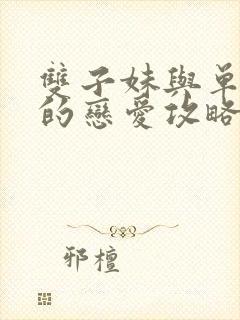 雙子妹與單
的戀愛攻略
邪檀